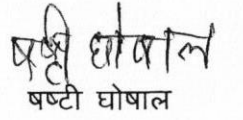 षष्टी घोषाल
षष्टी घोषाल